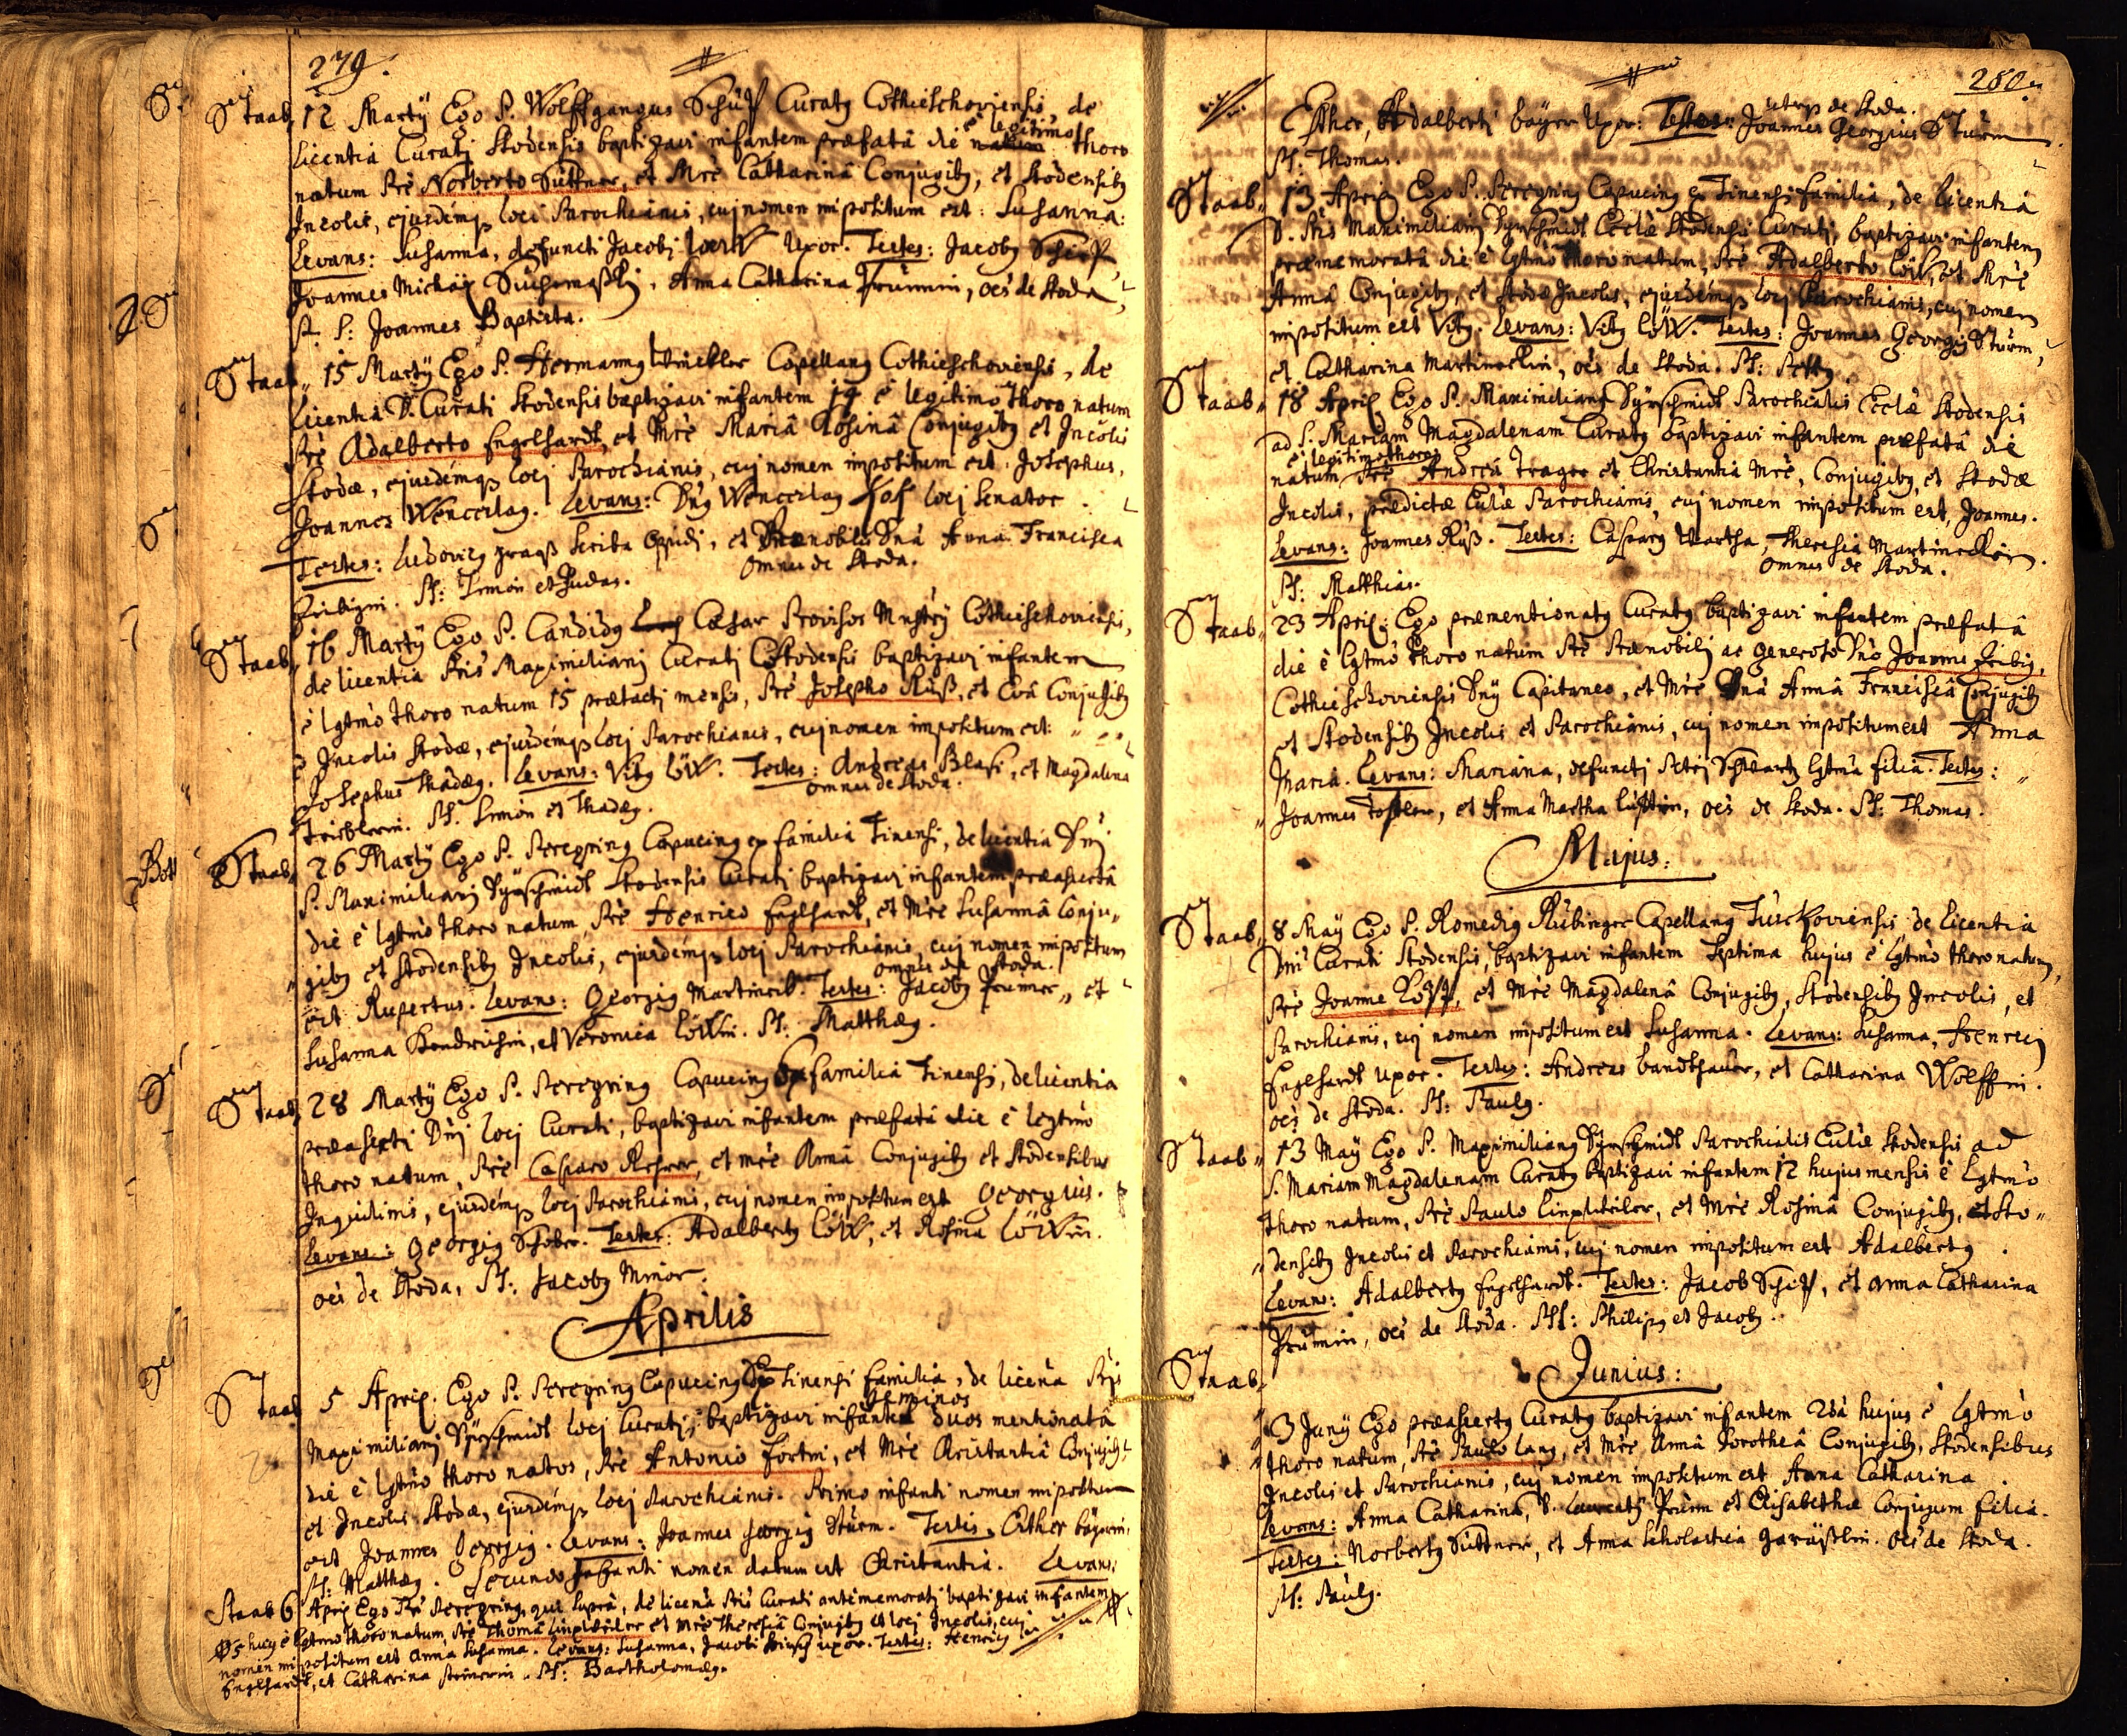 279.
Staab 12 Martÿ Ego P. Wolffgangus Curatg Cothieschoviensis, de
licentia Curatj Stodensis baptizavi infantem præfatâ die è legitimo thoro
natum Prè Norberto Süttner, et Mrè Catharinâ Conjugibg, et Stodensibg
Incolis, ejusdémqß loci Parochianis, cuj nomen impositum est: Susanna:
Levans: Susanna, defuncti Jacobj Uxor. Testes: Jacobg
Joannes Michäel, Anna Catharina Prümin, oès de Stoda,
P. S: Joannes Baptista.
Staab 15 Martÿ Ego P. Hermanng Capellang Cothieschoviensis, de
licentia D. Curati Stodensis baptizavi infantem 14 è legitimo thoro natum
Prè Adalberto Engelhardt, et Mrè Mariâ Rosinâ Conjugibg et Incolis
Stodæ, ejusdémqß locj Parochianis, cuj nomen impositum est, Josephus,
Joannes Wenceslag. Levans: Dng Wenceslag locj Senator
Testes: Ludovicg Scriba Oppidi, et Prænobilis Dnâ Anna Francisca
omnes de Stoda.
Fribigin. PS: Simon et Judas.
Staab 16 Martÿ Ego P. Candidg Cæsar Provisor Mnstrÿ Cothieschoviensis,
de licentia Pris Maximilianj Curatj Stodensis baptizavj infantem
è lgtmò thoro natum 15 prætacti mensis, Prè Josepho Rüß, et Evâ Conjugibg
Incolis Stodæ, ejusdémqß locj Parochianis, cuj nomen impositum est:
Josephus Thadæg. Levans: Vitg Löw. Testes: Andreas Blasi, et Magdalena
omnes de Stoda.
PS. Simon et Thadæg.
Staab 26 Martÿ Ego P. Peregring Capucing ex familiâ Tinensi, de licentia Dnj
P. Maximilianj Stodensis Curatj baptizavj infantem præasertâ
die è lgtmò thoro natum, Prè Henrico Englhardt, et Mrè Susannâ Conju„
„gibg et Stodensibg Incolis, ejusdémqß locj Parochianis, cuj nomen impositum
omnes de Stoda.
est Rupertus. Levans: Georgig Martineck. Testes: Jacobg Prümer „ et
Susanna Hendrichin, et Veronica Löwin. PS. Matthæg.
Staab 28 Martÿ Ego P. Peregring Capucing ex familiâ Tinensi, de licentia
præaserti Dnj locj Curati, baptizavi infantem præfatâ die è lgtmò
thoro natum, Prè Casparo, et Mrè Annâ Conjugibg et Stodensibus
Inquilinis, ejusdémqß locj Parochianis, cuj nomen impositum est Georgius.
Levans: Georgig Schober. Testes: Adalbertg Löw, et Rosina Löwin.
oès de Stoda, PS: Jacobg Minor.
Aprilis
Staab 5 April. Ego P. Peregring Capucing ex Tinensi familiâ, de licena Pris
geminos
Maximilianj locj Curatj, baptizavi infantes duos mentionatâ
die è lgtmò thoro natos, Prè Antonio Fortin, et Mrè Christantiâ Conjugibg
et Incolis Stodæ, ejusdémqß locj Parochianis. Primo infanti nomen impositum
est Joannes Georgig. Levans: Joannes Georgig Stürm. Testis, Esther Baÿerin.
PS: Matthæg. Secundo infanti nomen datum est Christantia. Levans:
Staab 6 April Ego Pr Peregring, qui supra, de licenâ Pris Curati antememorati baptizavi infantem
5 hujg è lgtmò thoro natum, Prè Thomâ et Mrè Theresiâ Conjugibg et locj Incolis, cuj
nomen impositum est Anna Susanna. Levans: Susanna, Jacobi uxor. Testes: Henricg
Englhardt, et Catharina. PS: Bartholomæg.
280.
utrqß de Stoda.
Esther, Adalbertj Baÿer Uxor: Testes: Joannes Georgius Stürm
PS: Thomas.
Staab 13 April Ego P. Peregring Capucing ex Tinensi familiâ, de licentiâ
D. Pris Maximilianj Ecclæ Stodensis Curatj, baptizavi infantem
præmemoratâ die è lgtmò thoro natum, Prè Adalberto Löw, et Mrè
Annâ Conjugibg, et Stodæ Incolis, ejusdémqß locj Parochianis, cuj nomen
impositum est Vitg. Levans: Vitg Löw. Testes: Joannes Georgig Stürm,
et Catharina Martineckin, oès de Stoda. PS: Petrg
Staab 18 April Ego P. Maximiliang Parochialis Ecclæ Stodensis
ad S. Mariam Magdalenam Curatg baptizavi infantem præfatâ die
è legitimo thoro
natum Prè Andreâ Trager et Christantiâ Mrè, Conjugibg, et Stodæ
Incolis, prædictæ Ecclæ Parochianis, cuj nomen impositum est, Joannes.
Levans: Joannes Rüß. Testes: Casparg Wartha, Theresia Martineckin.
omnes de Stoda.
PS: Matthias.
Staab 23 April: Ego præmentionatg Curatg baptizavi infantem præfatâ
die è lgtmò thoro natum Prè Prænobilj ac generoso Dnò Joanne Fribig,
Cothieschoviensis Dnÿ Capitaneo, et Mrè Dnâ Annâ Franciscâ Conjugibg
et Stodensibg Incolis et Parochianis, cuj nomen impositum est Anna
Maria. Levans: Mariana, defunctj Petrj Schwartz lgtma filia. Testes: „
„ Joannes, et Anna Martha, oès de Stoda. PS: Thomas.
Majus:
Staab 8 Maÿ Ego P. Romedig Rübinger Capellang Tuschkoviensis de licentia
Dni Curati Stodensis, baptizavi infantem septima hujus è lgtmò thoro natum,
Prè Joanne, et Mrè Magdalenâ Conjugibg, Stodensibg Incolis, et
Parochianis, cuj nomen impositum est Susanna. Levans: Susanna, Henricj
Englhardt uxor. Testes: Andreas Bandthauer, et Catharina Wolffin.
oès de Stoda. PS: Paulg.
Staab 13 Maÿ Ego P. Maximiliang Parochialis Ecclæ Stodensis ad
S. Mariam Magdalenam Curatg baptizavi infantem 12 hujus mensis è lgtmò
thoro natum, Prè Paulo, et Mrè Rosinâ Conjugibg, et Sto„
„densibg Incolis et Parochianis, cuj nomen impositum est Adalbertg.
Levans: Adalbertg Englhardt. Testes: Jacob, et Anna Catharina
Prümin, oès de Stoda. PS: Philipg et Jacobg.
Junius:
Staab 3 Junÿ Ego præasertg Curatg baptizavi infantem 2dâ hujus è lgtmò
thoro natum, Prè Paulo Lang, et Mrè Annâ Dorotheâ Conjugibg, Stodensibus
Incolis et Parochianis, cuj nomen impositum est Anna Catharina.
Levans: Anna Catharina, Prüm et Elisabethæ Conjugum filia.
Testes: Norbertg Süttner, et Anna Scholastica. oès de Stoda.
PS: Paulg.